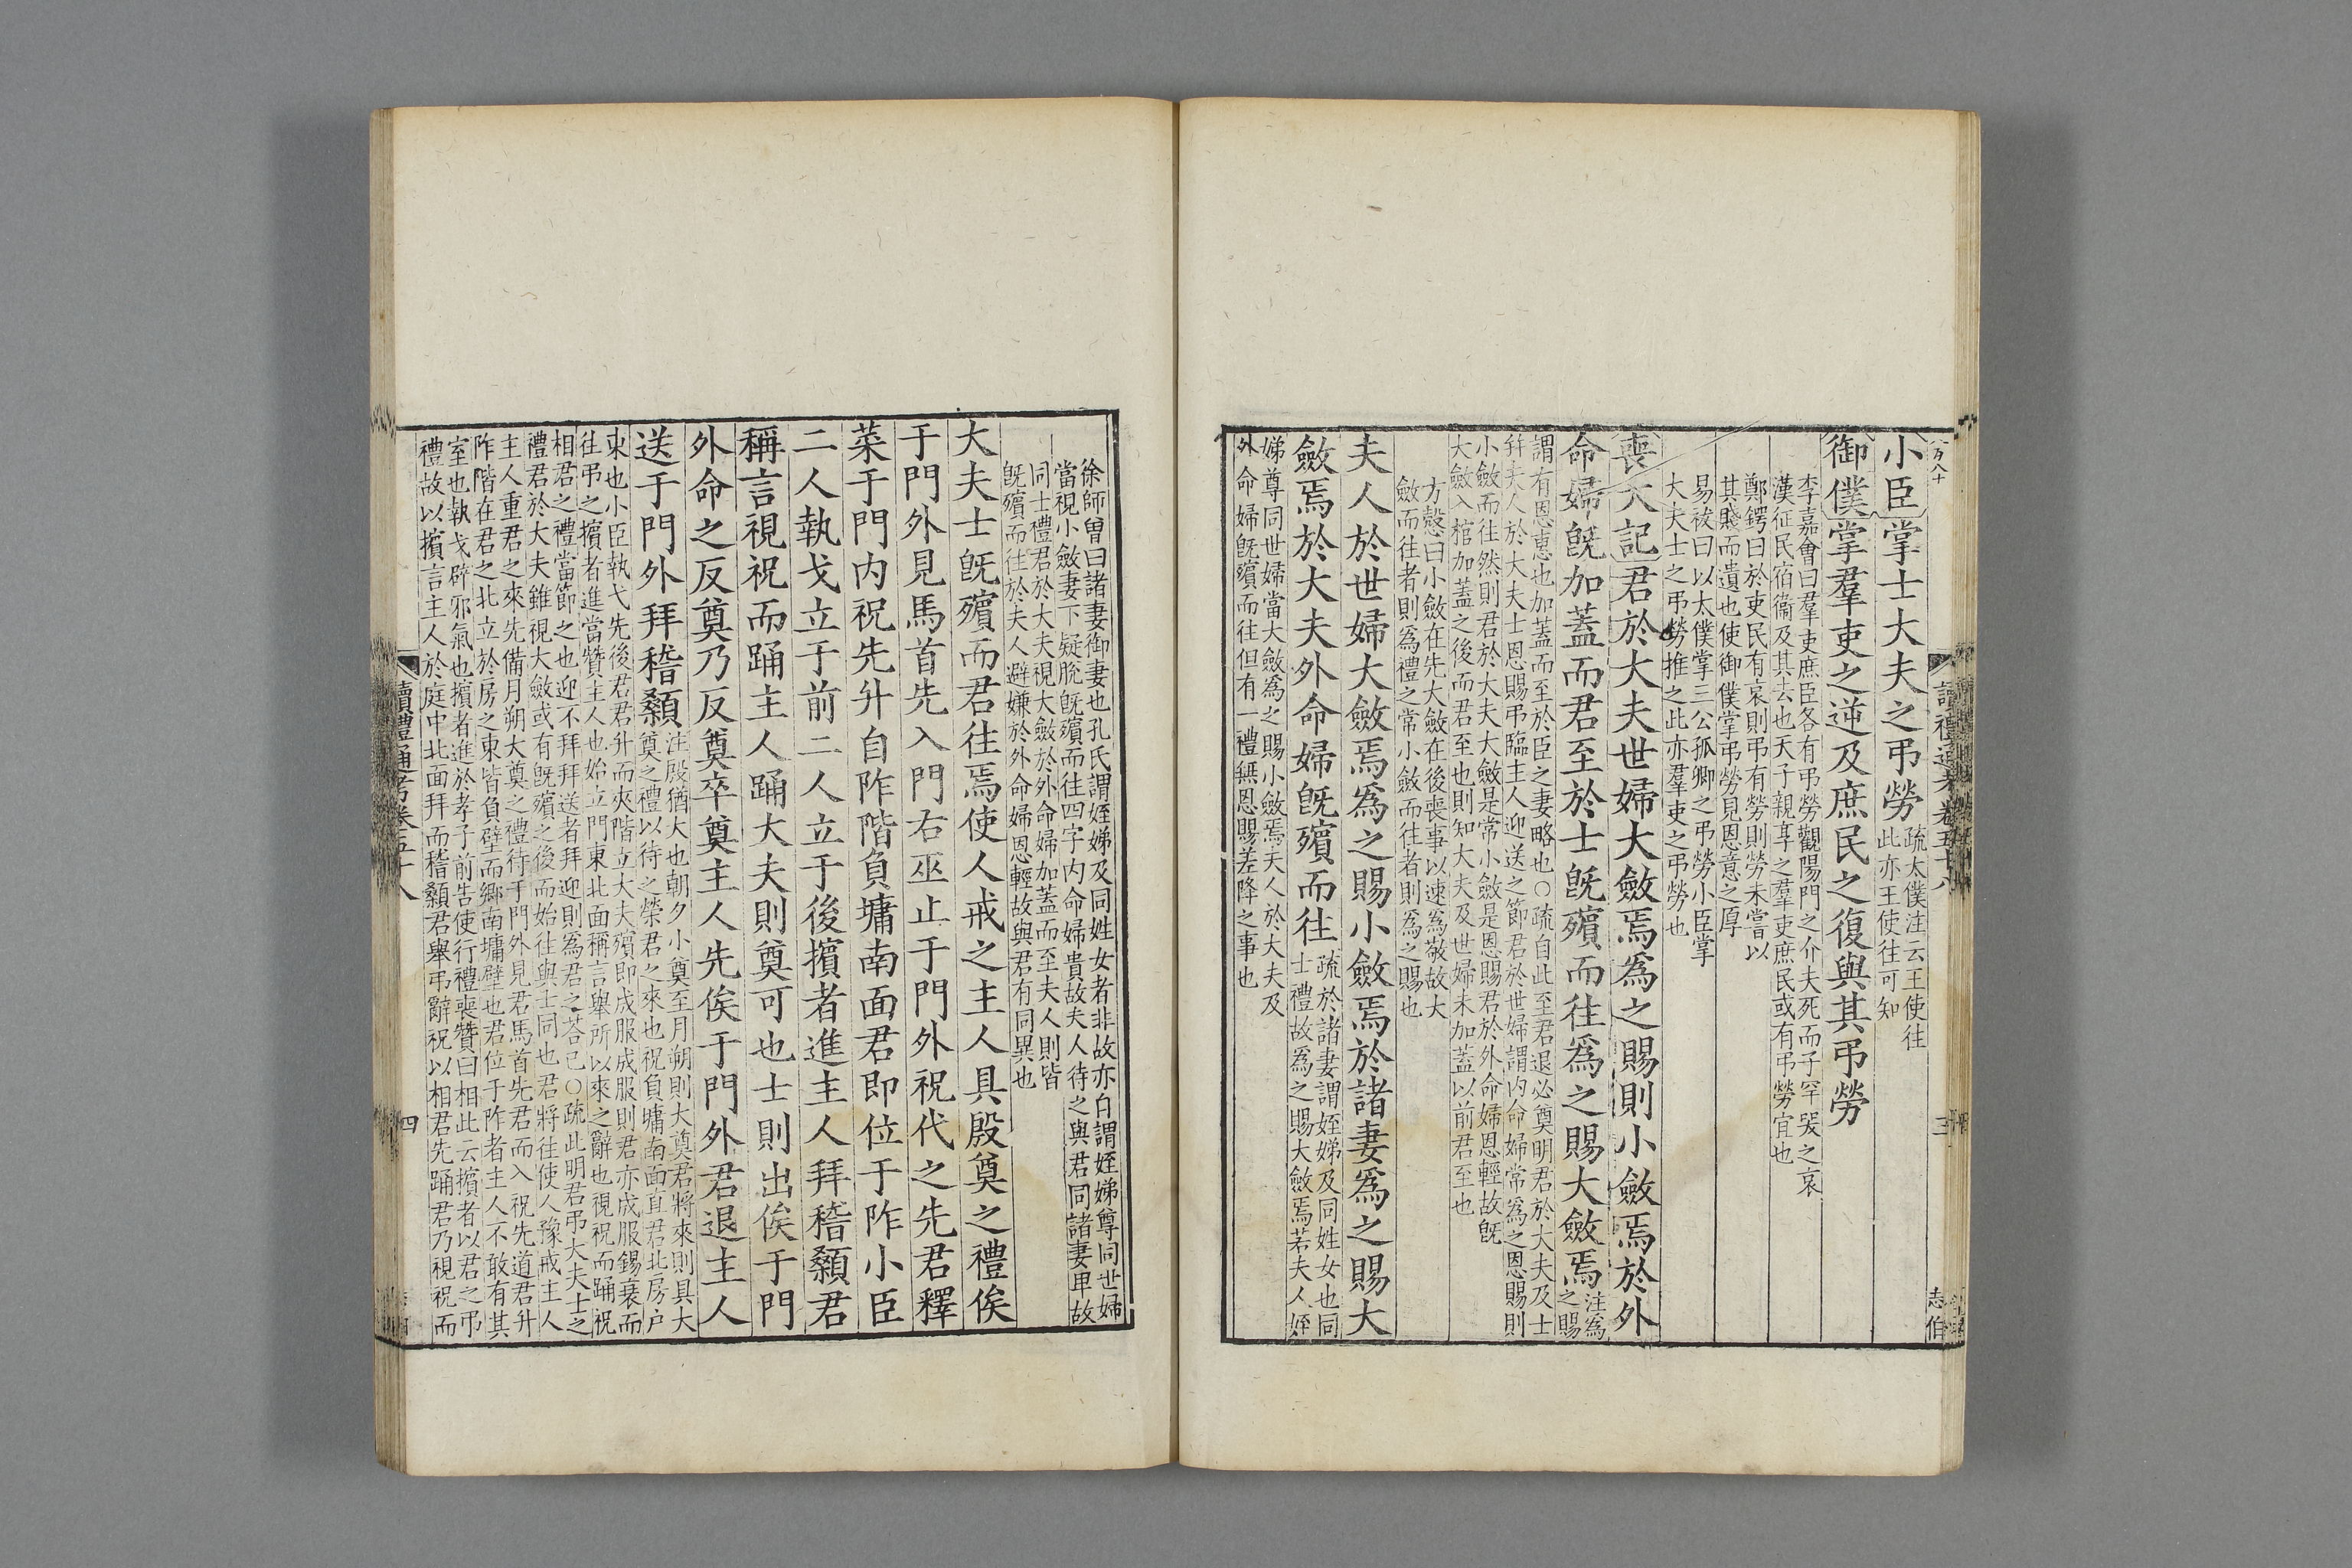 讀禮通考卷五十八
三
志伯
小臣掌士大夫之弔勞
疏太僕注云王使往
此亦王使往可知
御僕掌羣吏之逆及庶民之復與其弔勞
李嘉會曰羣吏庶臣各有弔勞觀陽門之介夫死而子罕哭之哀
漢征民宿衞及其去也天子親享之羣吏庶民或有弔勞宜也
鄭鍔曰於吏民有哀則弔有勞則勞未嘗以
其賤而遺也使御僕掌弔勞見恩意之厚
易祓曰以太僕掌三公孤卿之弔勞小臣掌
大夫士之弔勞推之此亦羣吏之弔勞也
喪大記君於大夫世婦大斂焉爲之賜則小斂焉於外
命婦旣加蓋而君至於士旣殯而往爲之賜大斂焉
注爲之賜
謂有恩惠也加蓋而至於臣之妻略也○疏自此至君退必奠明君於大夫及士
幷夫人於大夫士恩賜弔臨主人迎送之節君於世婦謂內命婦常爲之恩賜則
小斂而往然則君於大夫大斂是常小斂是恩賜君於外命婦恩輕故旣
大斂入棺加蓋之後而君至也則知大夫及世婦未加蓋以前君至也
方慤曰小斂在先大斂在後喪事以速爲敬故大
斂而往者則爲禮之常小斂而往者則爲之賜也
夫人於世婦大斂焉爲之賜小斂焉於諸妻爲之賜大
斂焉於大夫外命婦旣殯而往
疏於諸妻謂姪娣及同姓女也同
士禮故爲之賜大斂焉若夫人姪
娣尊同世婦當大斂爲之賜小斂焉夫人於大夫及
外命婦旣殯而往但有一禮無恩賜差降之事也
徐師曾曰諸妻御妻也孔氏謂姪娣及同姓女者非故亦白謂姪娣尊同世婦
當視小斂妻下疑脫旣殯而往四字內命婦貴故夫人待之與君同諸妻卑故
同士禮君於大夫視大斂於外命婦加蓋而至夫人則皆
旣殯而往於夫人避嫌於外命婦恩輕故與君有同異也
大夫士旣殯而君往焉使人戒之主人具殷奠之禮俟
于門外見馬首先入門右巫止于門外祝代之先君釋
菜于門內祝先升自阼階負墉南面君卽位于阼小臣
二人執戈立于前二人立于後擯者進主人拜稽顙君
稱言視祝而踊主人踊大夫則奠可也士則出俟于門
外命之反奠乃反奠卒奠主人先俟于門外君退主人
送于門外拜稽顙
注殷猶大也朝夕小奠至月朔則大奠君將來則具大
奠之禮以待之榮君之來也祝負墉南面直君北房戶
東也小臣執弋先後君君升而夾階立大夫殯卽成服成服則君亦成服錫衰而
往弔之擯者進當贊主人也始立門東北面稱言舉所以來之辭也視祝而踊祝
相君之禮當節之也迎不拜拜送者拜迎則爲君之荅已○疏此明君弔大夫士之
禮君於大夫雖視大斂或有旣殯之後而始往與士同也君將往使人豫戒主人
主人重君之來先備月朔大奠之禮待于門外見君馬首先君而入祝先道君升
阼階在君之北立於房之東皆負壁而鄉南墉壁也君位于阼者主人不敢有其
室也執戈辟邪氣也擯者進於孝子前告使行禮喪贊曰相此云擯者以君之弔
禮故以擯言主人於庭中北面拜而稽顙君舉弔辭祝以相君先踊君乃視祝而
讀禮通考卷五十八
四